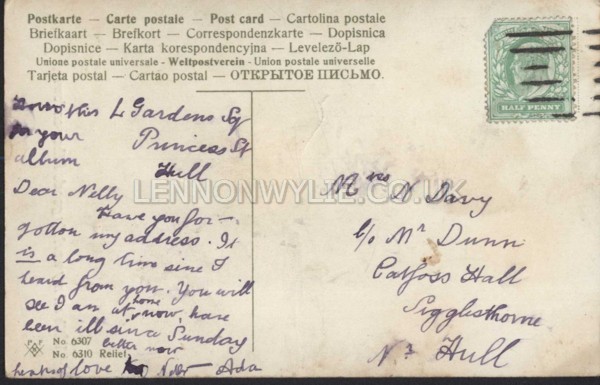 Postkarte – Carte postale – Post card – Cartolina postale
Briefkaart – Brefkort – Correspondenzkarte – Dopisnica
Dopisnice – Karta korespondencyjna – Levelező-Lap
Unione postale universale - Weltpostverein - Union postale universelle
Tarjeta postal – Cartão postal – ОТКРЫТОЕ ПИСЬМО.
HALF PENNY
this 4 Gardens Sq
in your Princess St
album Hull
Dear Nelly
Have you for-
gotton my address. It
is a long time sine I
heard from you. You will
see I am at home now, have
been ill since Sunday
better now
heaps of love to Nell Ada
Mrs N Davy
c/o Mr Dunn
Catfoss Hall
Sigglesthorne
Nr Hull
No 6307
No 6310 Relief
LENNONWYLIE.CO.UK